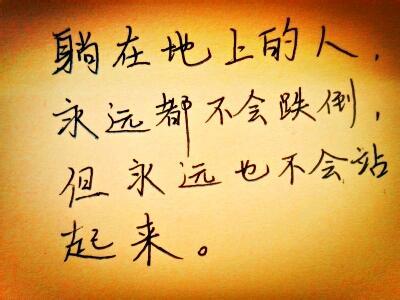 躺在地上的人,
永远都不会跌倒,
但永远也不会站
起来。